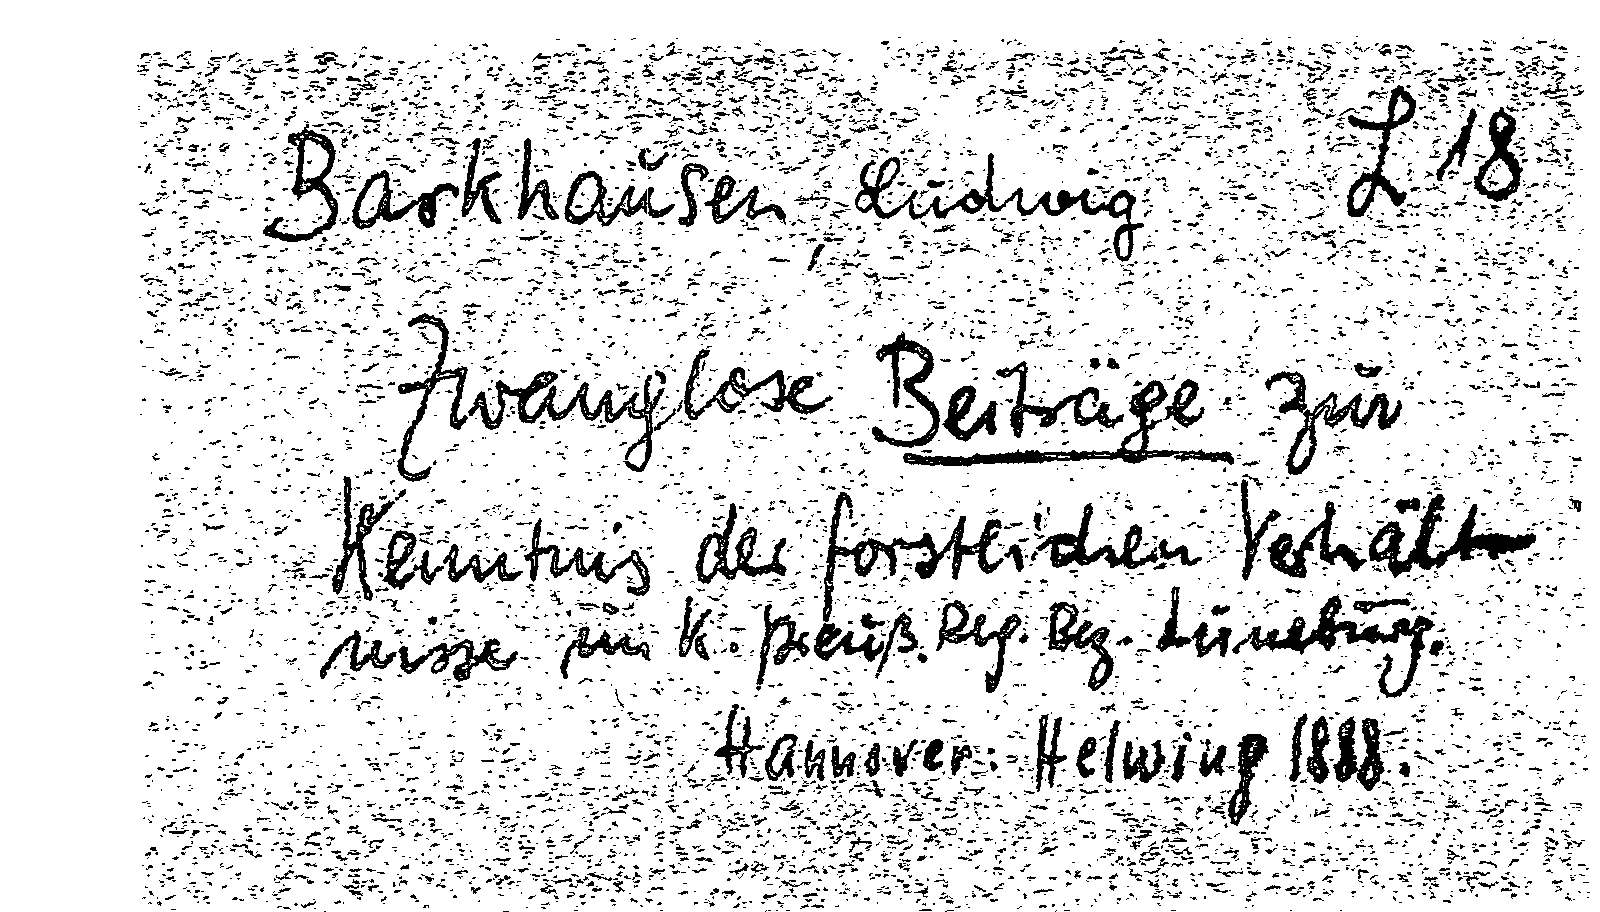 Barkhausen, Ludwig L 18
Zwanglose Beiträge zur
Kenntnis der forstlichen Verhält-
nisse im K. preuß. Reg. Bez. Lüneburg.
Hannover: Helwing 1888.